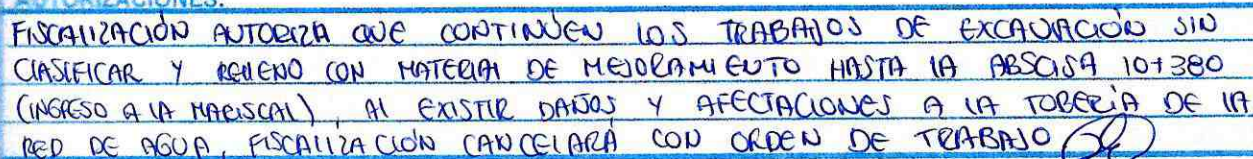 AUTORIZACIONES:
FISCALIZACIÓN AUTORIZA QUE CONTINÚEN LOS TRABAJOS DE EXCAVACIÓN SIN
CLASIFICAR Y RELLENO CON MATERIAL DE MEJORAMIENTO HASTA LA ABSCISA 10+380
(INGRESO A LA MARISCAL), AL EXISTIR DAÑOS Y AFECTACIONES A LA TUBERÍA DE LA
RED DE AGUA, FISCALIZACIÓN CANCELARÁ CON ORDEN DE TRABAJO